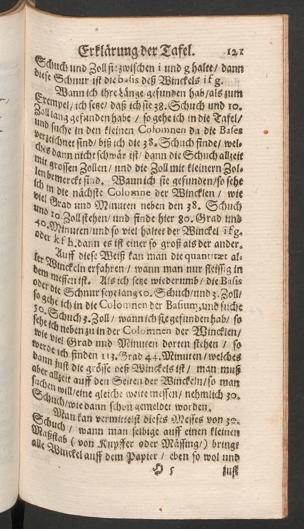 Erklärung der Tafel. 121
Schuch und Zoll sie zwischen i und g haltet / dann
diese Schnur ist die basis deß Winckels i f g.
Wann ich ihre Länge gefunden hab / als zum
Exempel / ich setze / daß ich sie 38. Schuch und 10.
Zoll lang gefunden habe / so gehe ich in die Tafel /
und suche in den kleinen Colomnen da die Bases
verzeichnet sind / biß ich die 38. Schuch finde / wel-
ches dann nicht schwär ist / dann die Schuch allzeit
mit grossen Zollen / und die Zoll mit kleinern Zol-
len bemercket sind. Wann ich sie gefunden / so sihe
ich in die nächste Colomne der Wincklen / wie
viel Grad und Minuten neben den 38. Schuch
und 10. Zoll stehen / und finde hier 80. Grad und
40. Minuten / und so viel haltet der Winckel i f g.
oder k f h. dann es ist einer so groß als der ander.
Auff diese Weiß kan man die quantitæt al-
ler Wincklen erfahren / wann man nur fleissig in
dem messen ist. Als ich setze wiederumb / die Basis
oder die Schnur seye lang 50. Schuch / und 3. Zoll /
so gehe ich in die Colomnen der Basium, und suche
50. Schuch 3. Zoll / wann ich sie gefunden hab / so
sehe ich neben zu in der Colomnen der Wincklen /
wie viel Grad und Minuten dorten stehen / so
werde ich finden 113. Grad 44. Minuten / welches
dann just die grösse deß Winckels ist / man muß
aber allzeit auff den Seiten der Wincklen / so man
suchen will / eine gleiche weite messen / nehmlich 30.
Schuch / wie dann schon gemeldet worden.
Man kan vermittelst dieses Messes von 30.
Schuch / wann man selbige auff einen kleinen
Maßstab (von Kupffer oder Mässing /) bringt
alle Winckel auff dem Papier / eben so wol und
5 just